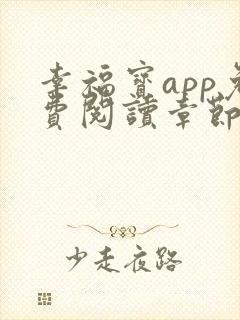 幸福寶app免
費閱讀章節
少走夜路